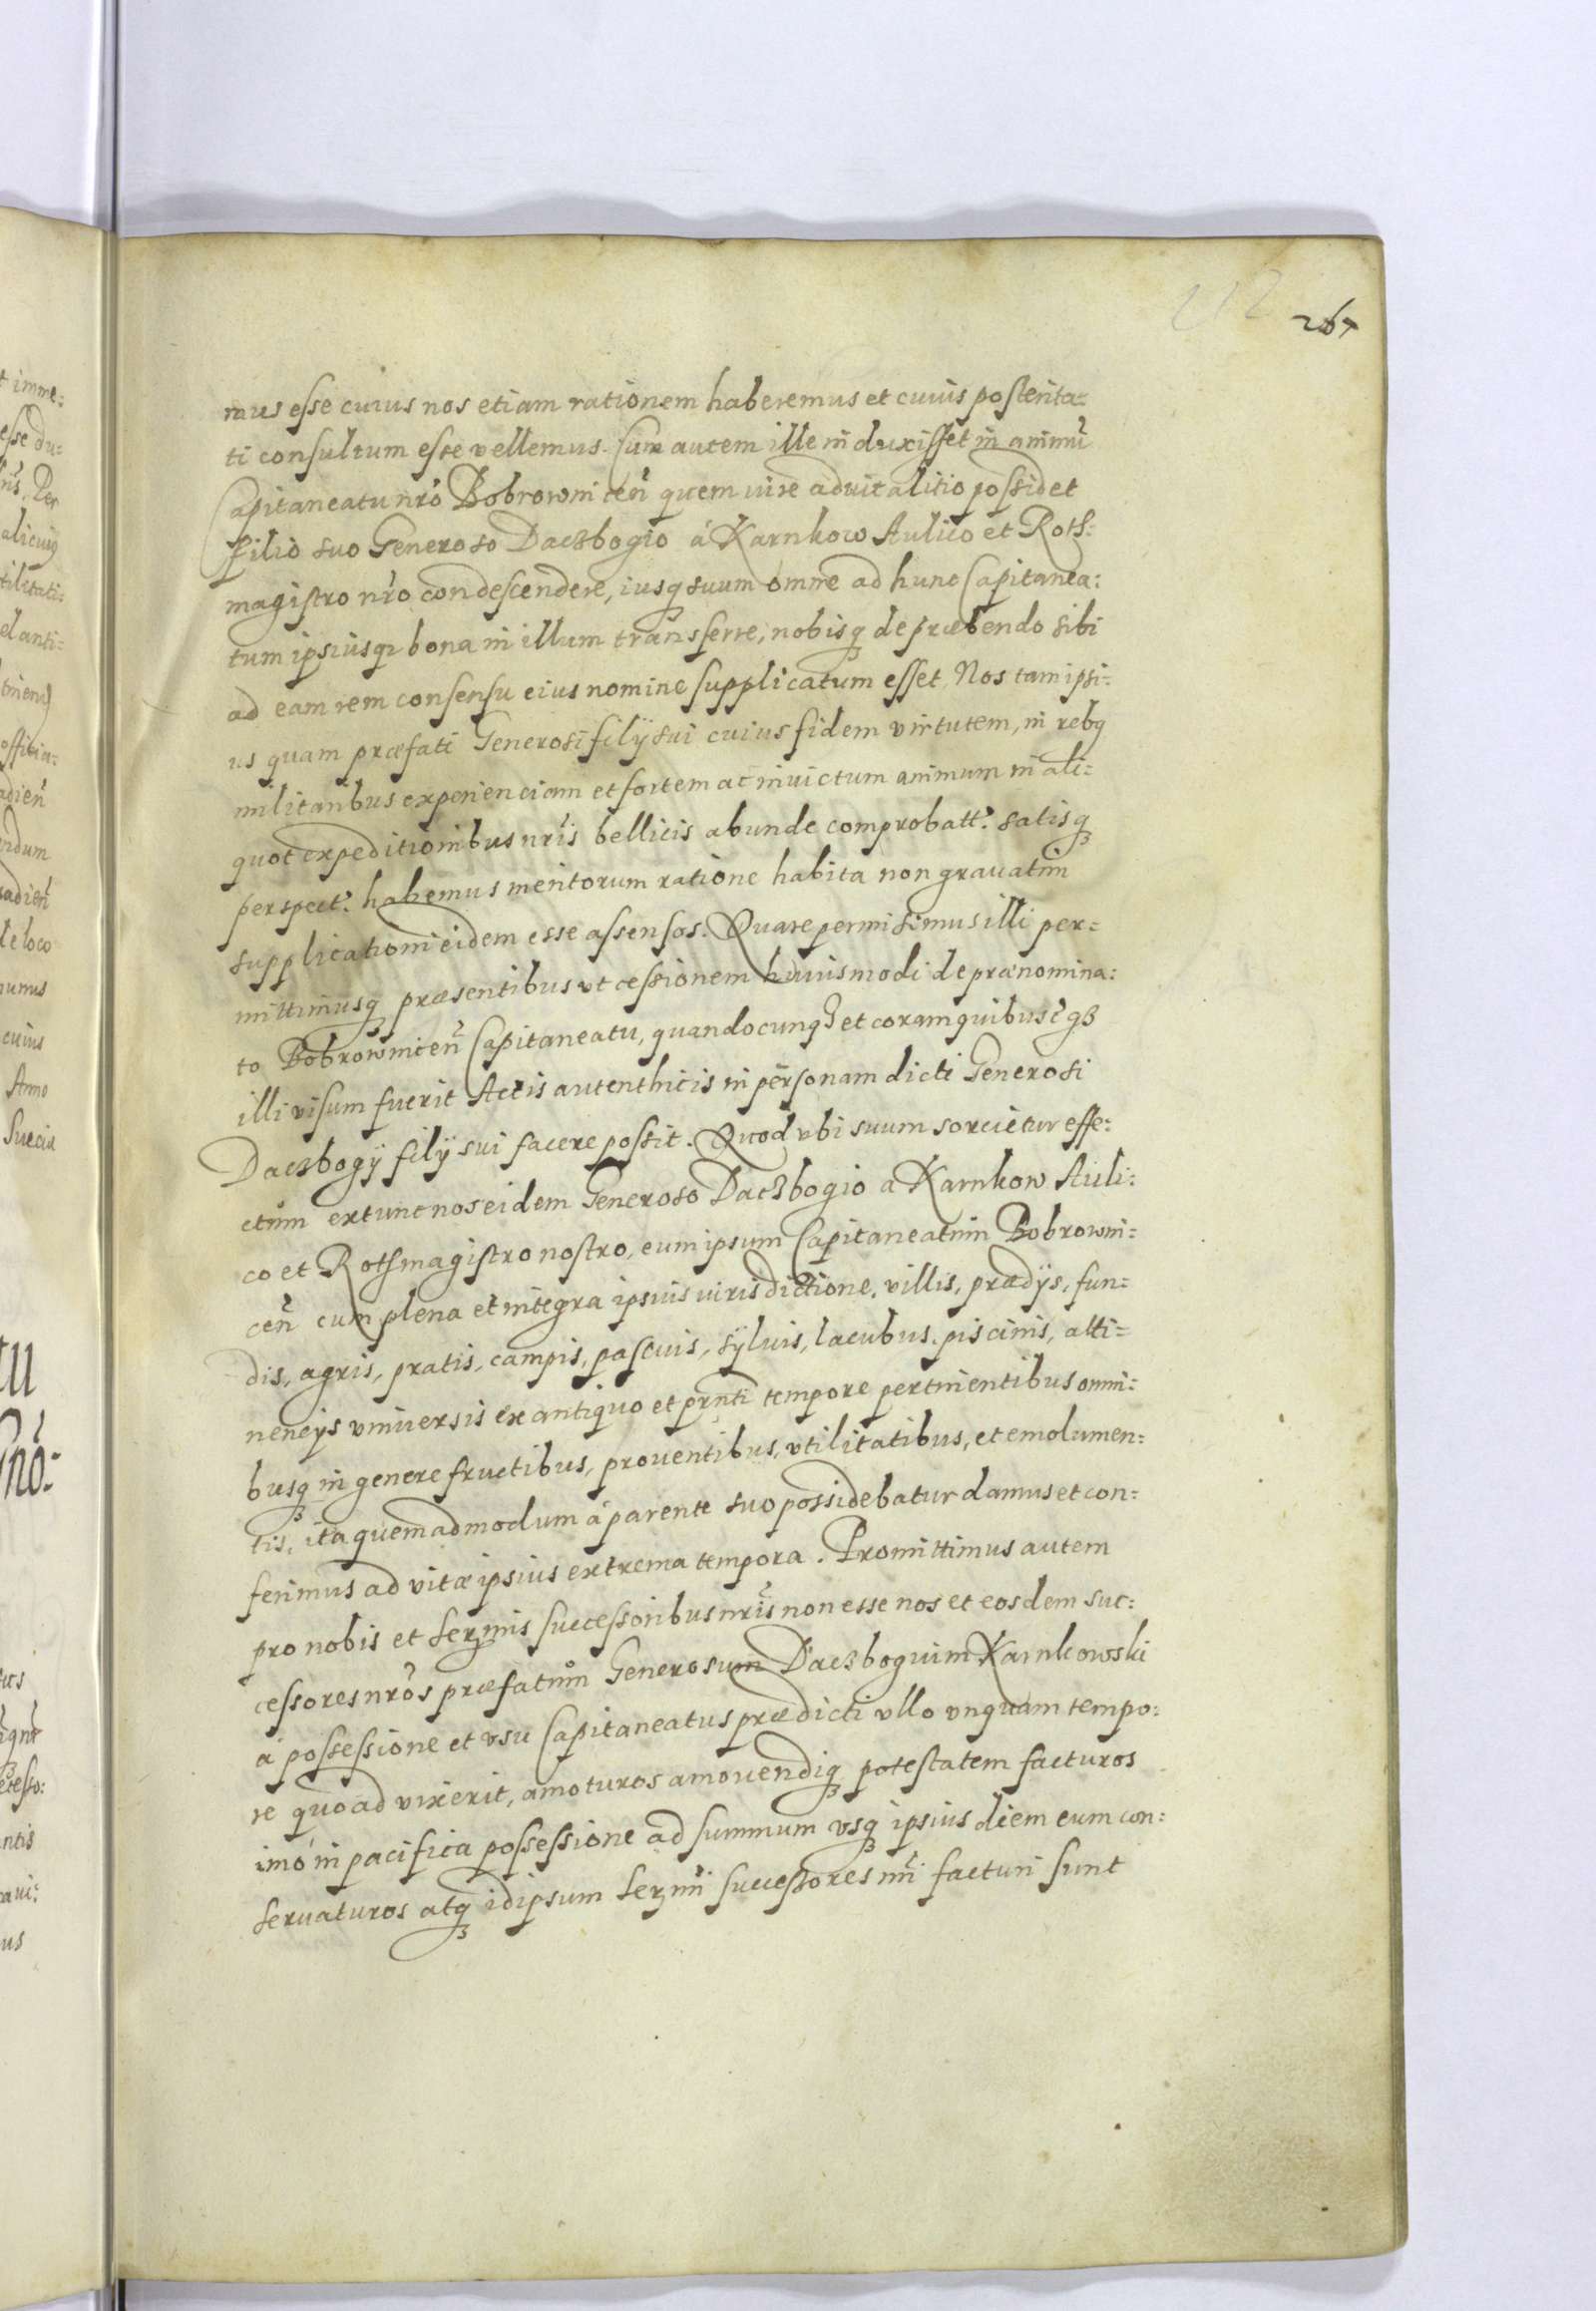 212 267
mus esse cuius nos etiam rationem haberemus et cuuis posterita=
ti consultum esse vellemus. Cum autem ille induxisset in animũ
Capitaneatu nr̃o Bobrownicen̄ quem iure aduitalitio possidet
filio suo Generoso Daczbogio á Karnkow Aulico et Roth:
magistro nr̃o condescendere, iusq; suum omne ad hunc Capitanea:
tum ipsiusq; bona in illum transferre, nobisq; de præbendo sibi
ad eam rem consensu eius nomine supplicatum esset. Nos tam ipsi:
us quam præfati Generosi filÿ sui cuius fidem virtutem, in rebq
militaribus experienciam et fortem ac inuictum animum in ali:
quot expeditionibus nr̃is bellicis abunde comprobatt. satisq;
perspect. habemus meritorum ratione habita non grauatim
supplicationi eidem esse assensos. Quare permisimus illi per=
mittimusq; præsentibus vt cessionem huiusmodi de prænomina:
to Bobrownicen̄ Capitaneatu, quandocunq; et coram quibuscq3
illi visum fuerit Actis autenthicis in personam dicti Generosi
Daczbogÿ filÿ sui facere possit. Quod vbi suum sorcietur effe:
ctům extunc nos eidem Generoso Daczbogio a Karnkow Auli:
co et Rothmagistro nostro, eum ipsum Capitaneatum Bobrowni=
cen̄ cum plena et integra ipsius iurisdictione, villis, prædÿs, fun=
dis, agris, pratis, campis, pascuis, sÿluis, lacubus, piscinis, atti=
nencÿs vniuersis ex antiquo et pr̃nti tempore pertinentibus omni:
busq; in genere fructibus, prouentibus, vtilitatibus, et emolumen:
tis, ita quemadmodum á parente suo possidebatur damus et con:
ferimus ad vitæ ipsius extrema tempora. Promittimus autem
pro nobis et Serm̃is successoribus nr̃is non esse nos et eosdem suc:
cessores nr̃os præfatům Generosum Daczboguim Karnkowski
á possessione et vsu Capitaneatus prædicti vllo vnquam tempo:
re quoad vixerit, amoturos amouendiq; potestatem facturos
imó in pacifica possessione ad summum vsq; ipsius diem eum con:
seruaturos atq; idipsum Serm̃i successores nr̃i facturi sunt